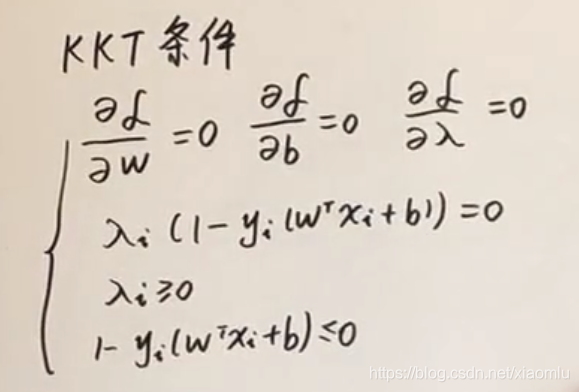 KKT 条件
∂ℒ/∂w =0 ∂ℒ/∂b =0 ∂ℒ/∂λ =0
λi (1- yi (wᵀxi+b)) =0
λi ≥0
1- yi(wᵀxi+b) ≤0
https://blog.csdn.net/xiaomlu